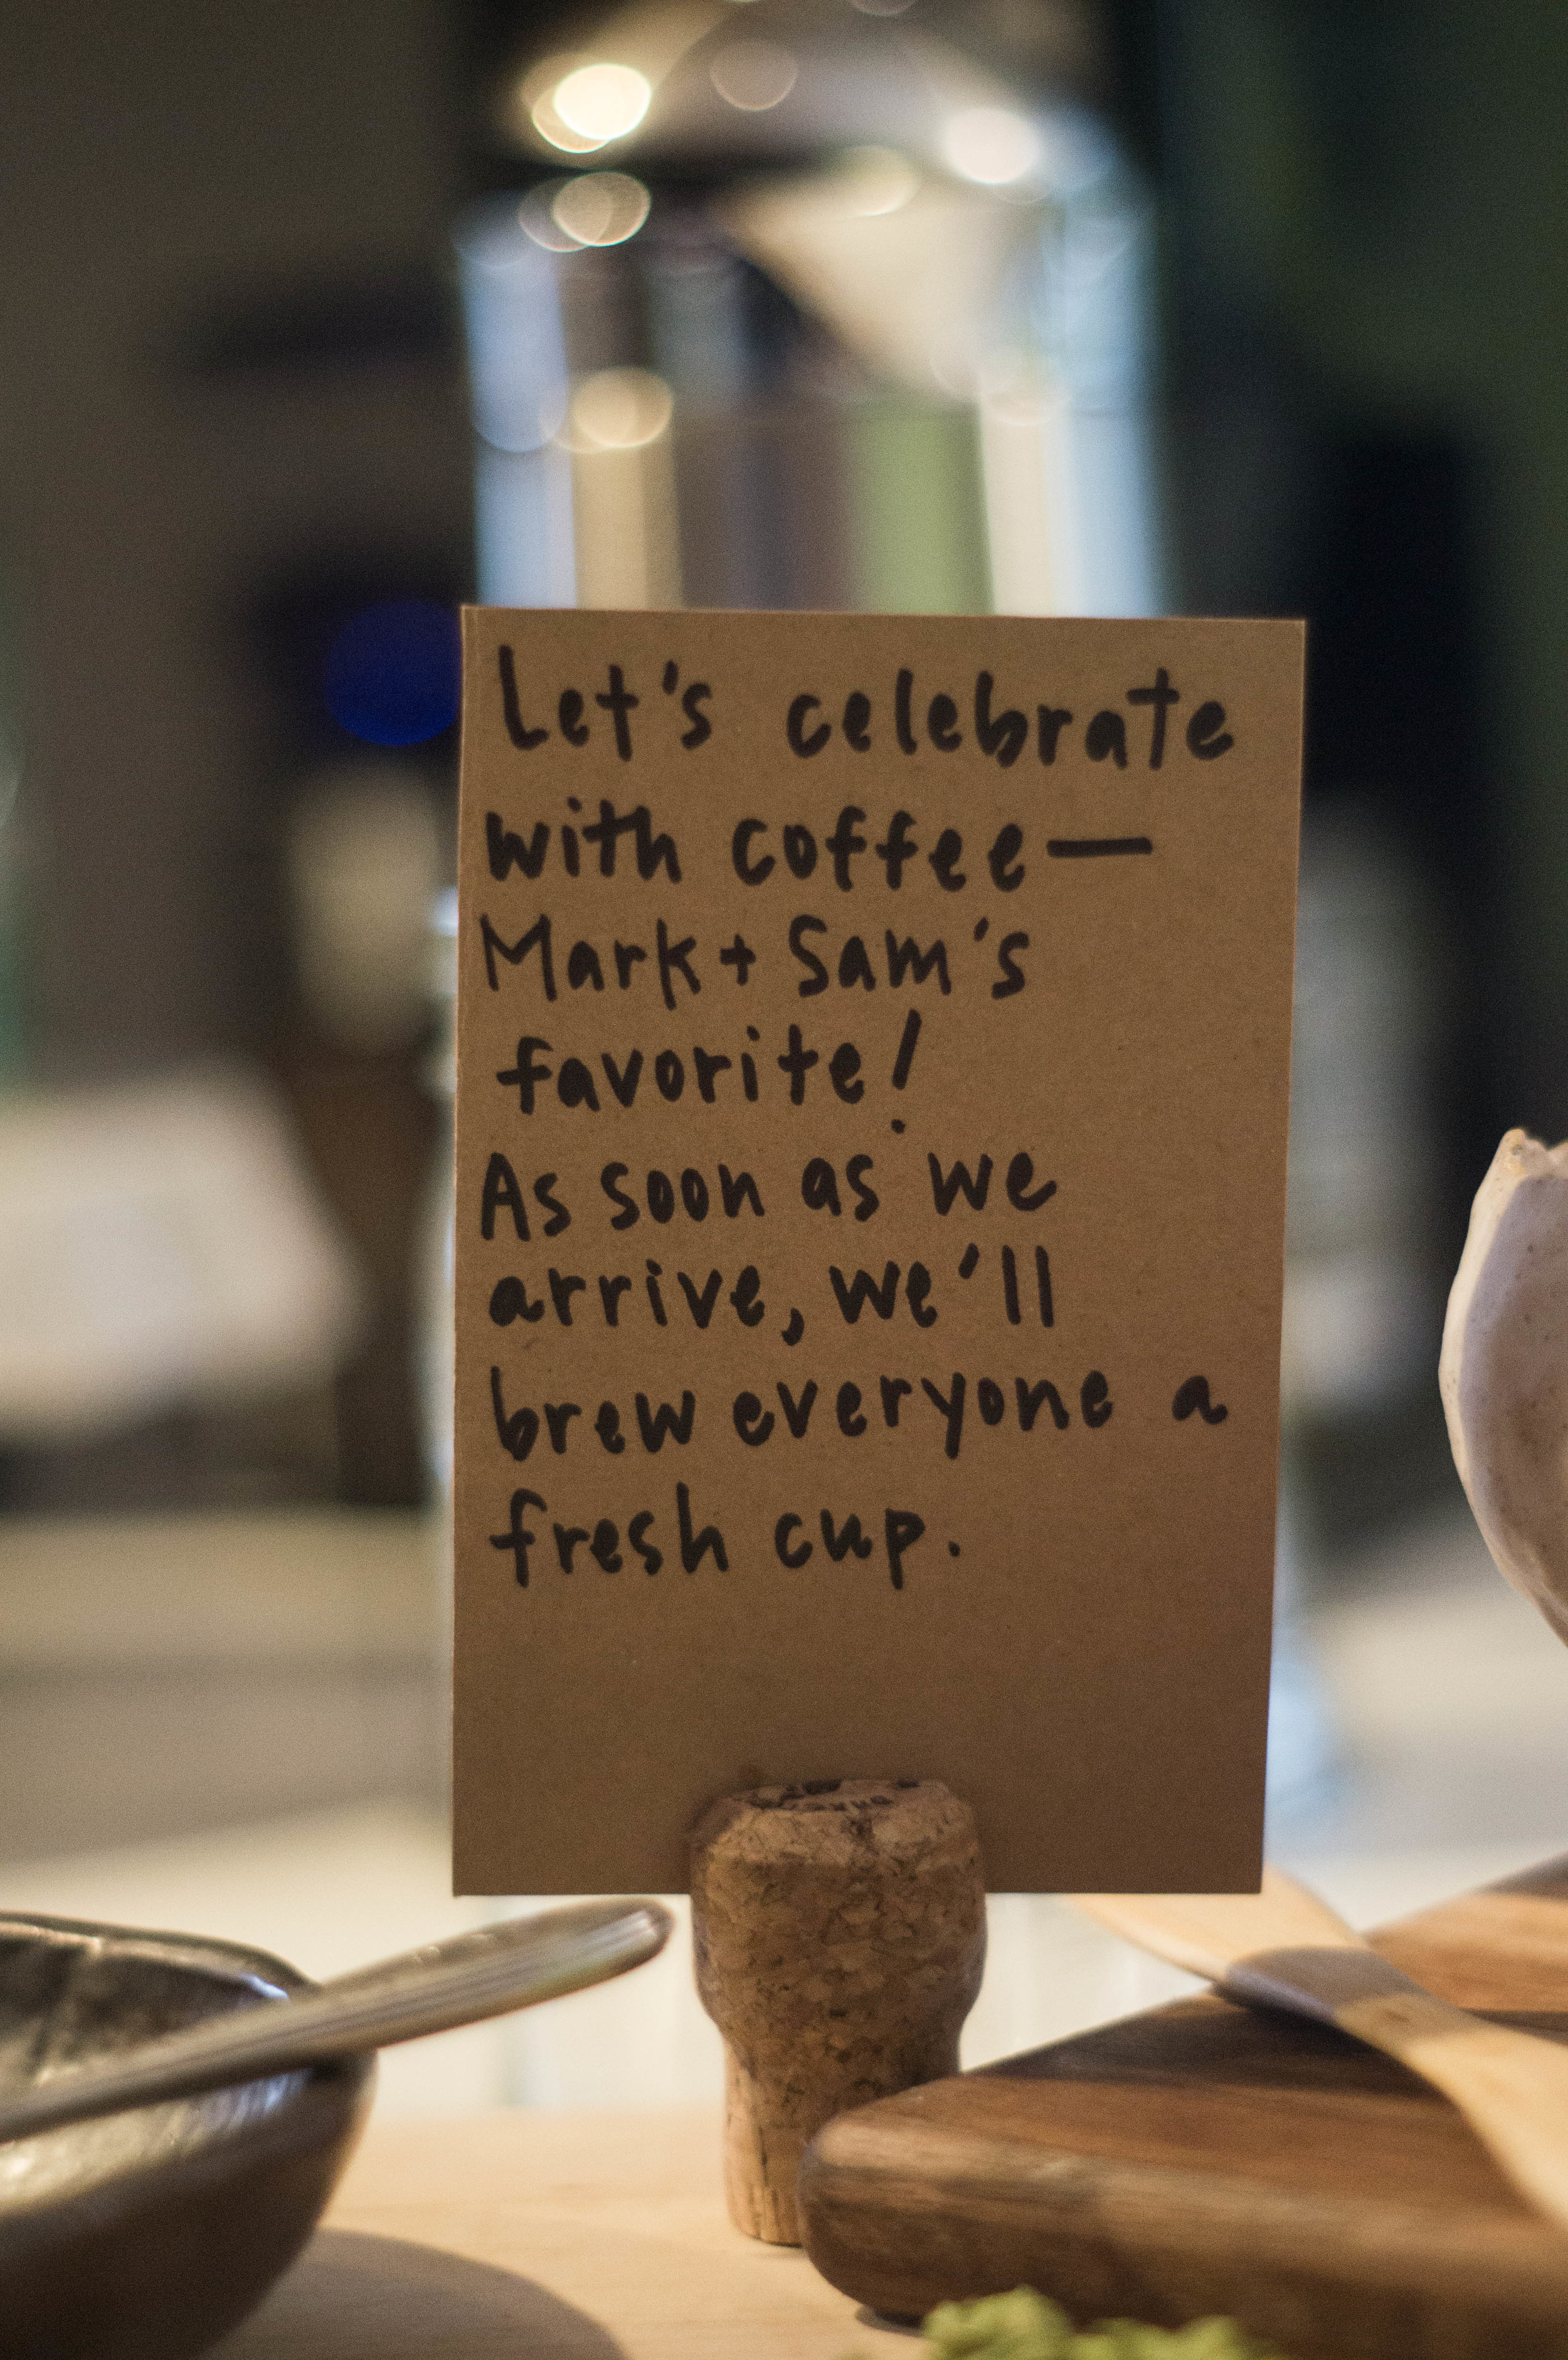 Let's celebrate
with coffee—
Mark + Sam's
favorite!
As soon as we
arrive, we'll
brew everyone a
fresh cup.